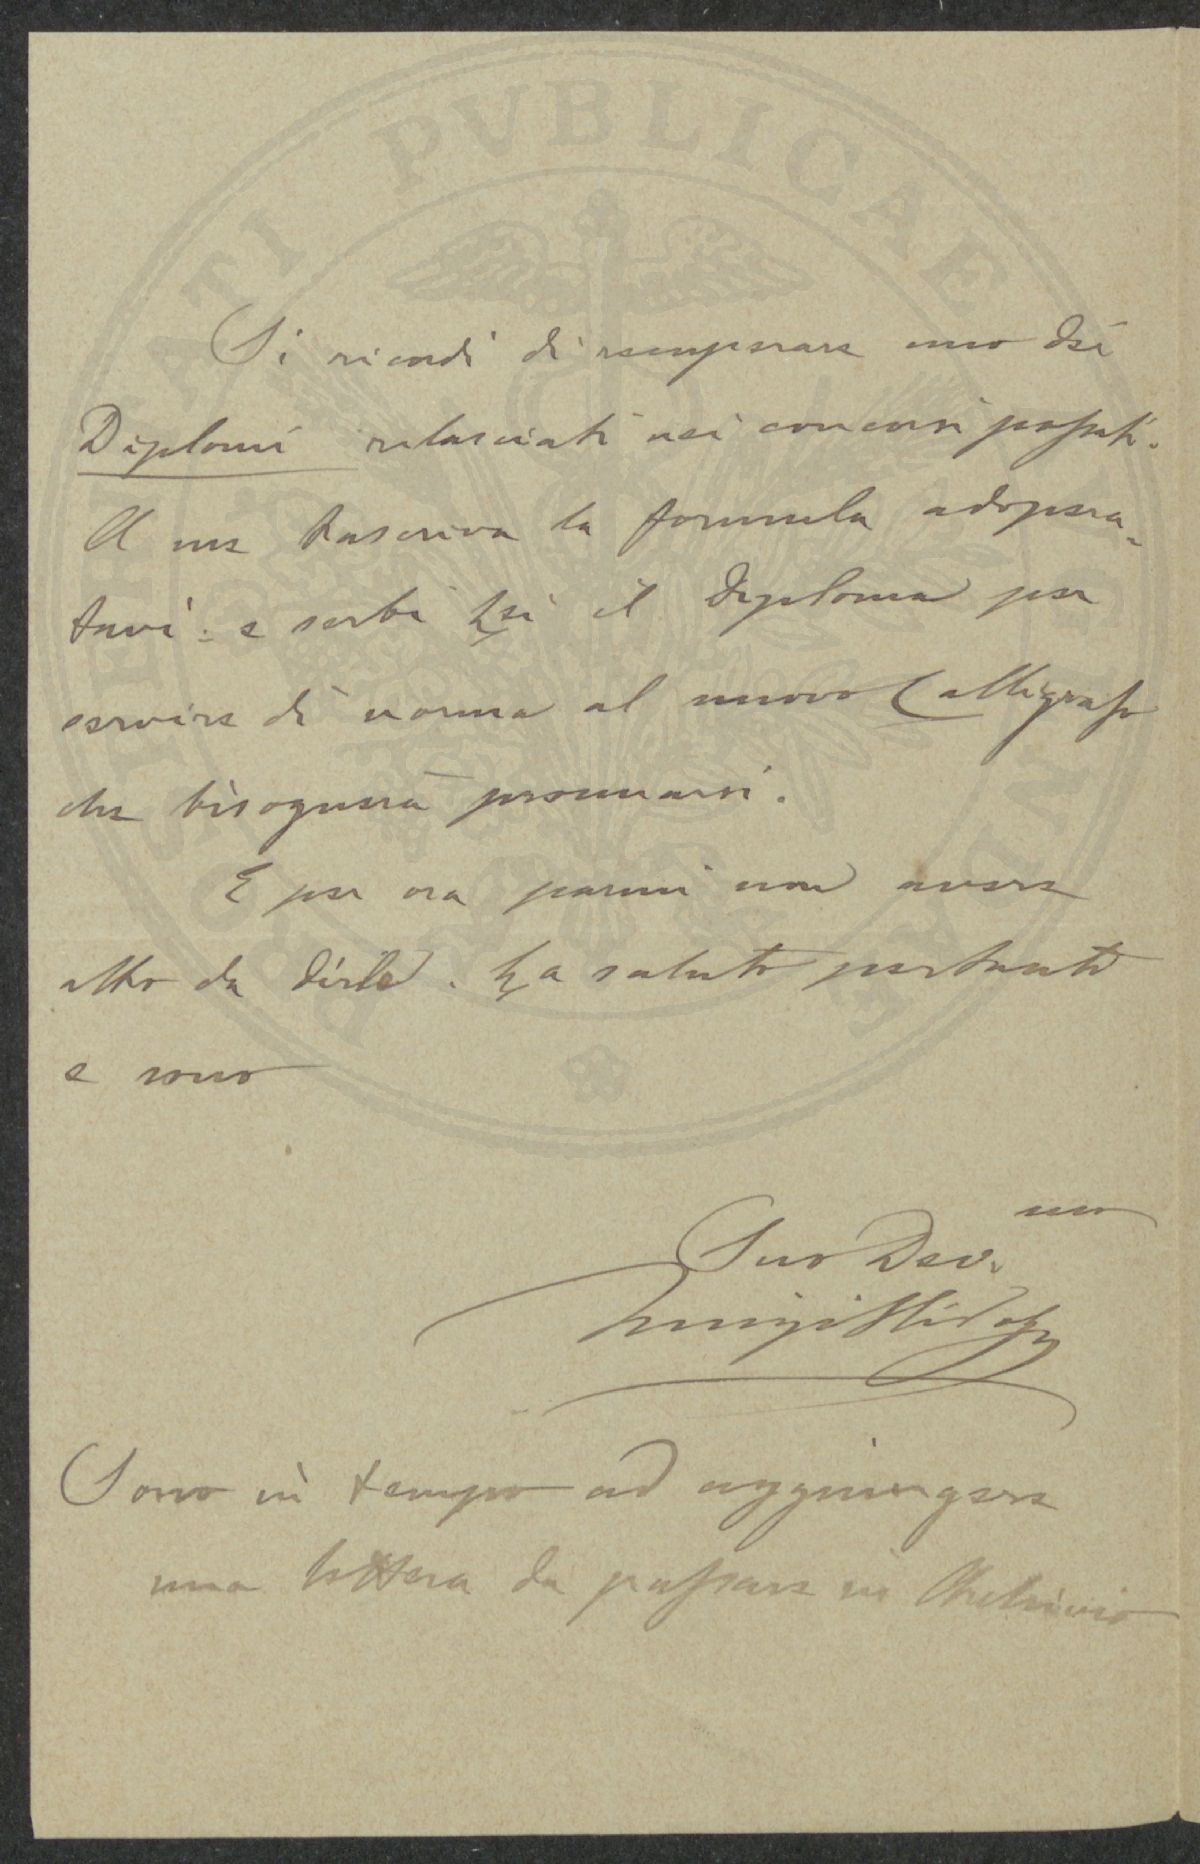 Si ricordi di recuperare uno dei
Diplomi rilasciati nei concorsi passati.
A me trascriva la formula adopera-
tavi: e serbi Lei il Diploma per
servire di norma al nuovo Calligrafo
che bisognerà procurarsi.
E per ora parmi non avere
altro da dirle. La saluto pertanto
e sono
Suo Dev.mo
Luigi
Sono in tempo ad aggiungere
una lettera da passare in Archivio